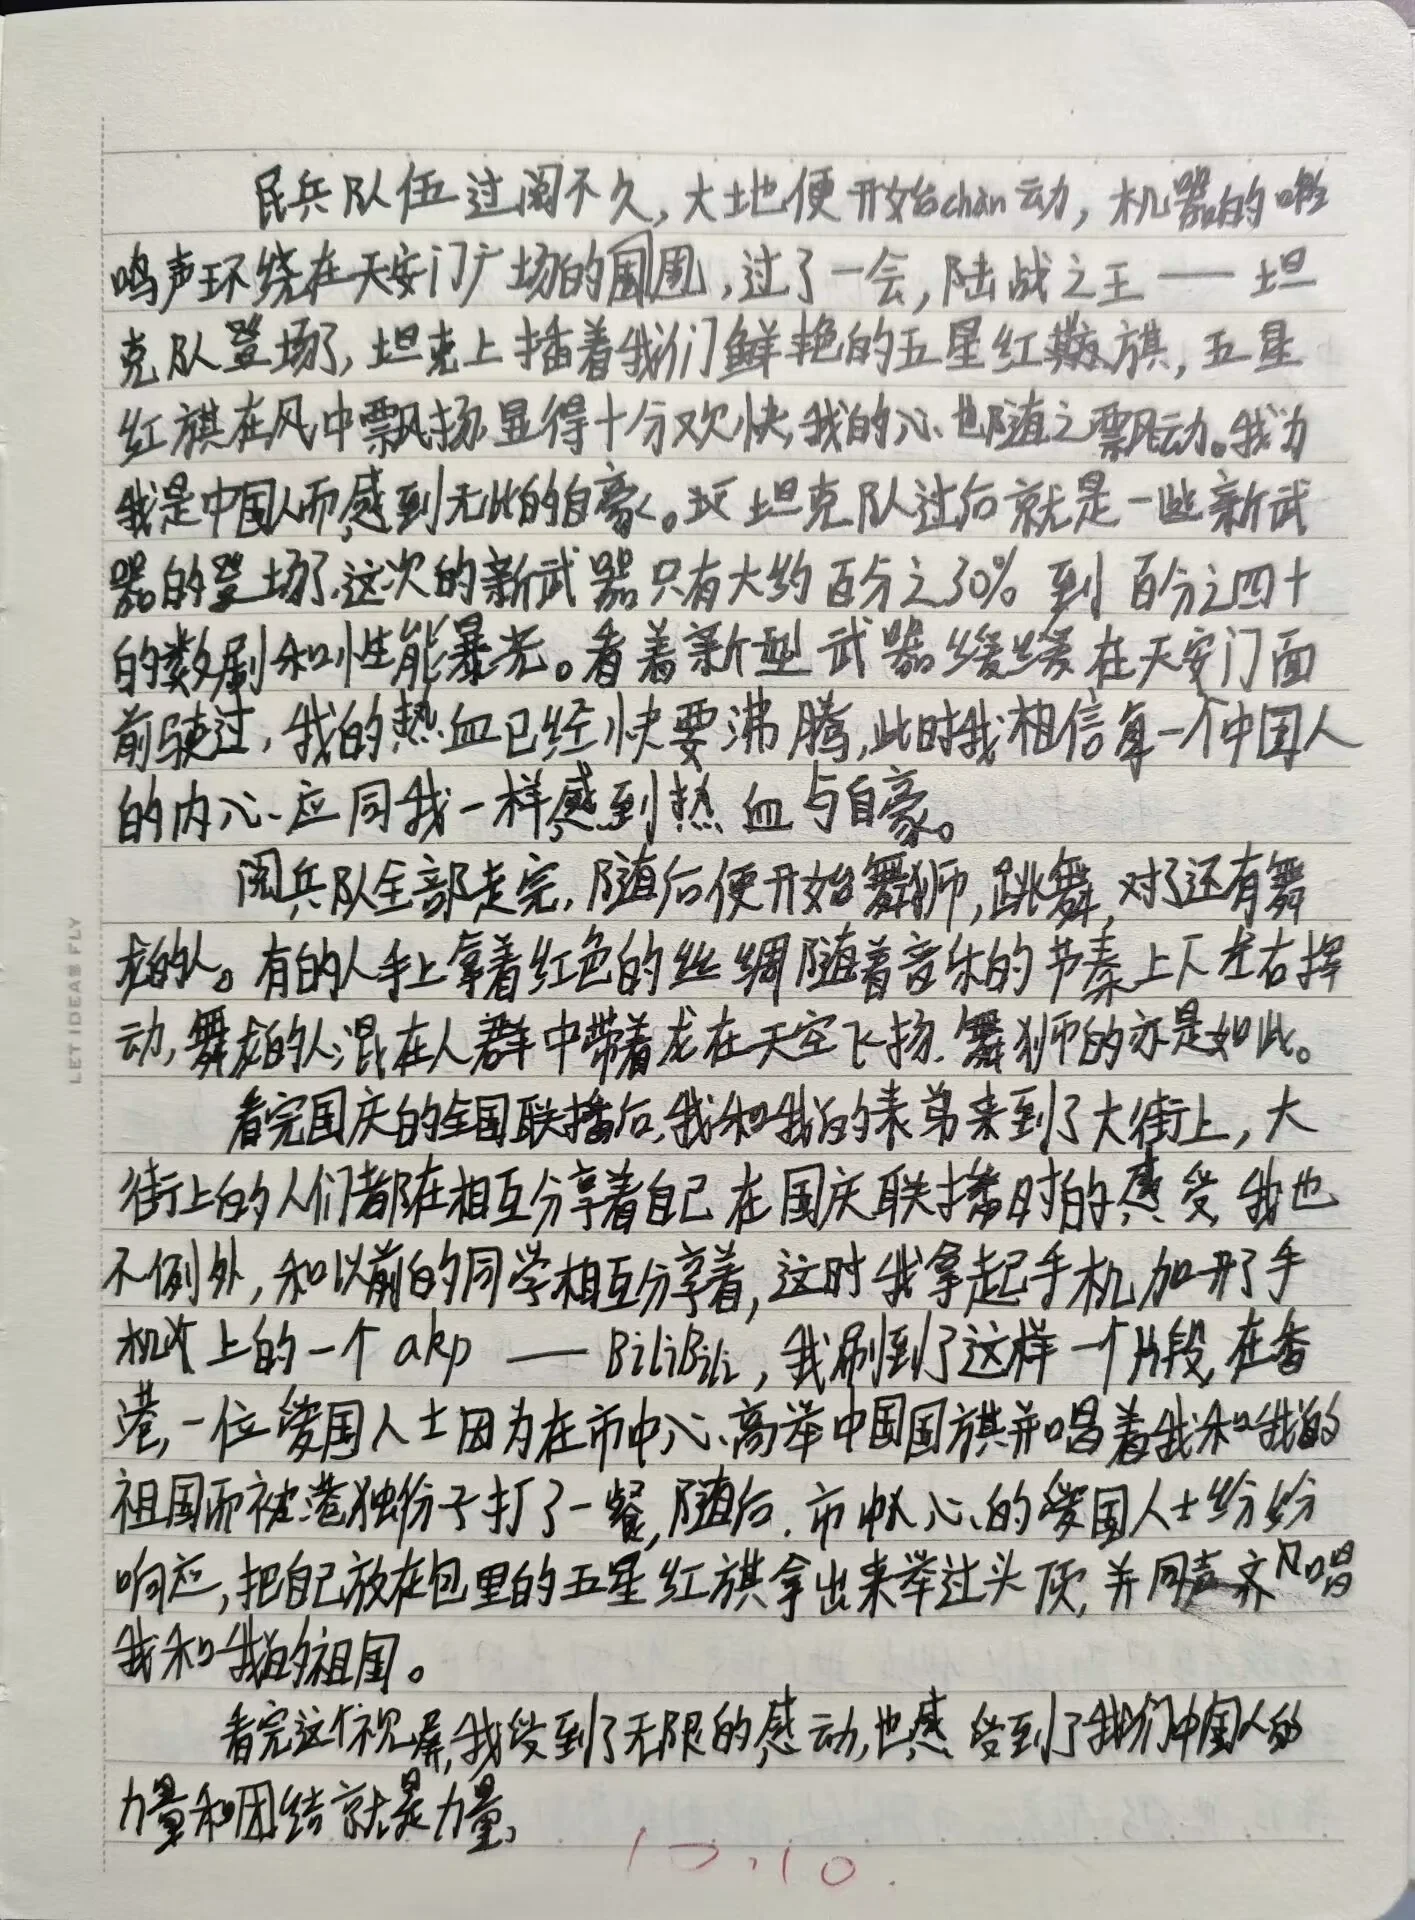 民兵队伍过阅不久，大地便开始chan动，机器的
鸣声环绕在天安门广场的周围，过了一会，陆战之王——坦
克队登场了，坦克上插着我们鲜艳的五星红旗，五星
红旗在风中飘扬显得十分欢快，我的心也随之飘动。我为
我是中国人而感到无比的自豪。坦克队过后就是一些新武
器的登场了，这次的新武器只有大约百分之30%到百分之四十
的数剧和性能暴光。看着新型武器缓缓在天安门面
前驶过，我的热血已经快要沸腾，此时我相信每一个中国人
的内心应同我一样感到热血与自豪。
阅兵队全部走完，随后便开始舞狮，跳舞，对了还有舞
龙的人。有的人手上拿着红色的丝绸随着音乐的节奏上下左右挥
动，舞龙的人混在人群中带着龙在天空飞扬，舞狮的亦是如此。
看完国庆的全国联播后，我和我的表弟来到了大街上，大
街上的人们都在相互分享着自己在国庆联播时的感受，我也
不例外，和以前的同学相互分享着，这时我拿起手机加开了手
机上的一个akp——BiliBili，我刷到了这样一个片段，在香
港，一位爱国人士因为在市中心高举中国国旗并唱着我和我的
祖国而被港独份子打了一餐，随后，市中心的爱国人士纷纷
响应，把自己放在包里的五星红旗拿出来举过头顶，并同声齐唱
我和我的祖国。
看完这个视屏，我受到了无限的感动，也感受到了我们中国人的
力量和团结就是力量，
10.10.
LET IDEAS FLY